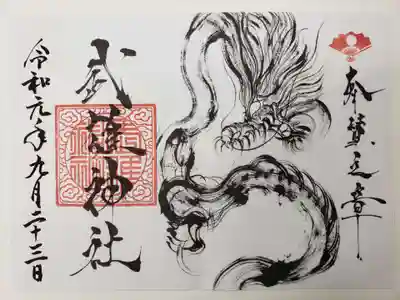 奉賛之章
武蓮神社
令和元年九月二十三日